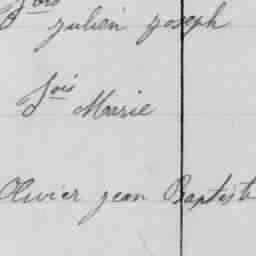 fois
julien joseph
fois Marie
Olivier jean Baptist